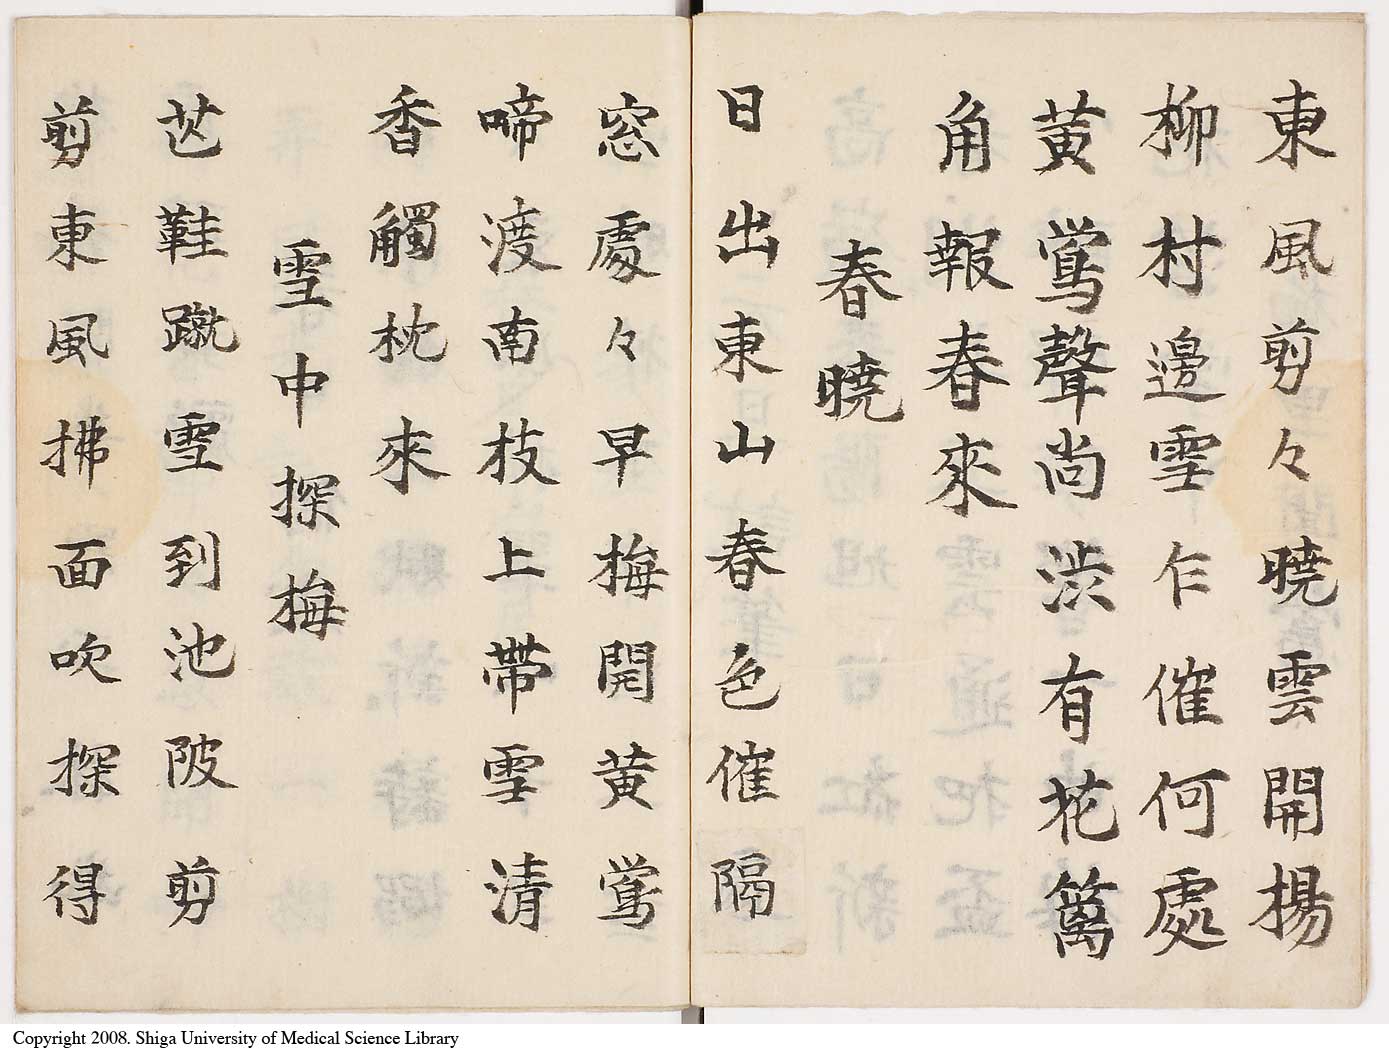 東風剪々曉雲開楊
柳村邊雪乍催何處
黃鶯聲尚澁有花籬
角報春來
春曉
日出東山春色催隔
窓處々早梅開黃鶯
啼渡南枝上帶雪清
香觸枕來
雪中探梅
芒鞋蹴雪到池陂剪
剪東風拂面吹探得
Copyright 2008. Shiga University of Medical Science Library